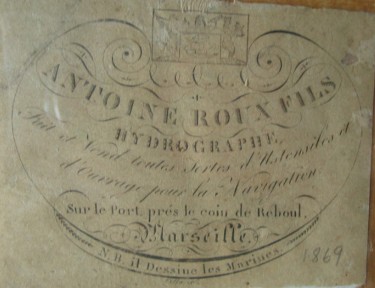 ANTOINE ROUX FILS
HYDROGRAPHE,
Fait et Vend toutes Sortes d'Ustensiles et
d'Ouvrage pour la Navigation.
Sur le Port, prés le coin de Reboul.
Marseille.
N.B. Il Dessine les Marines.
1869